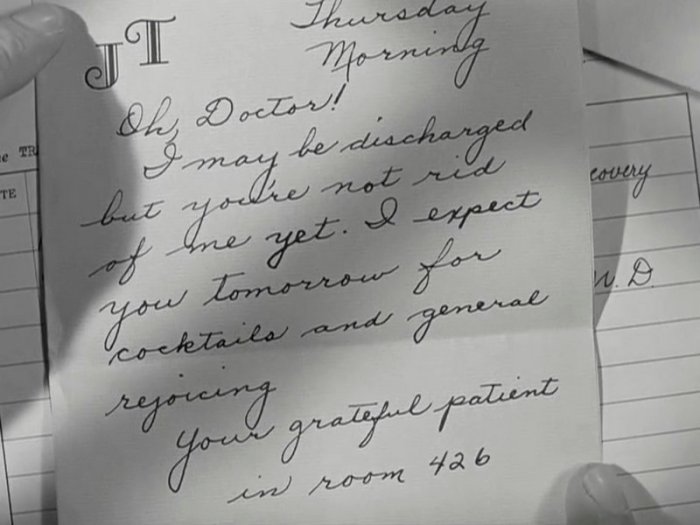 JT
Thursday
Morning
Oh, Doctor!
I may be discharged
but you're not rid
of me yet. I expect
you tomorrow for
cocktails and general
rejoicing
Your grateful patient
in room 426
e TR
TE
covery
M.D.